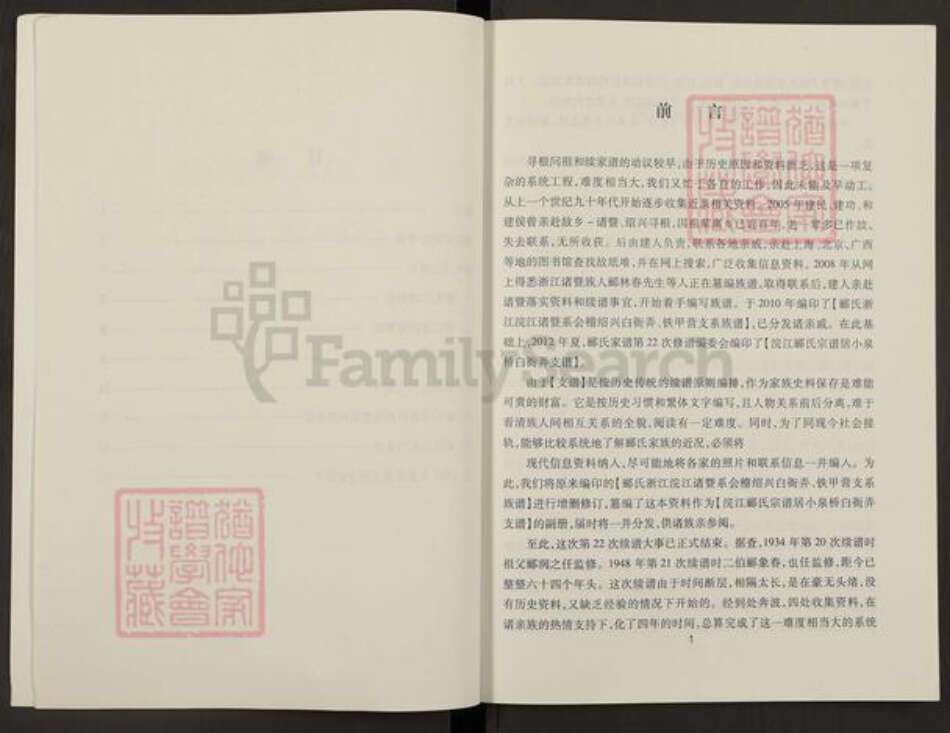 前 言
寻根问祖和续家谱的动议较早,由于历史原因和资料匮乏,这是一项复
杂的系统工程,难度相当大,我们又忙于各自的工作,因此未能及早动工。
从上一个世纪九十年代开始逐步收集近亲相关资料。2005年建民、建功、和
建侯曾亲赴故乡–诸暨、绍兴寻根,因祖辈离乡已近百年,老一辈多已作故,
失去联系,无所收获。后由建人负责,联系各地亲戚,亲赴上海、北京、广西
等地的图书馆查找故纸堆,并在网上搜索,广泛收集信息资料。2008年从网
上得悉浙江诸暨族人郦林春先生等人正在纂编族谱,取得联系后,建人亲赴
诸暨落实资料和续谱事宜,开始着手编写族谱。于2010年编印了【郦氏浙
江浣江诸暨系会稽绍兴白衙弄、铁甲营支系族谱】,已分发诸亲戚。在此基
础上,2012年夏,郦氏家谱第22次修谱编委会编印了【浣江郦氏宗谱居小泉
桥白衙弄支谱】。
由于【支谱】是按历史传统的续谱原则编排,作为家族史料保存是难能
可贵的财富。它是按历史习惯和繁体文字编写,且人物关系前后分离,难于
看清族人间相互关系的全貌,阅读有一定难度。同时,为了同现今社会接
轨,能够比较系统地了解郦氏家族的近况,必须将
现代信息资料纳入,尽可能地将各家的照片和联系信息一并编入。为
此,我们将原来编印的【郦氏浙江浣江诸暨系会稽绍兴白衙弄、铁甲营支系
族谱】进行增删修订,纂编了这本资料作为【浣江郦氏宗谱居小泉桥白衙弄
支谱】的副册,届时将一并分发,供诸族亲参阅。
至此,这次第22次续谱大事已正式结束。据查,1934年第20次续谱时
祖父郦润之任监修。1948年第21次续谱时二伯郦象春,也任监修,距今已
整整六十四个年头。这次续谱由于时间断层,相隔太长,是在毫无头绪,没
有历史资料,又缺乏经验的情况下开始的。经到处奔波,四处收集资料,在
诸亲族的热情支持下,化了四年的时间,总算完成了这一难度相当大的系统
1
FamilySearch